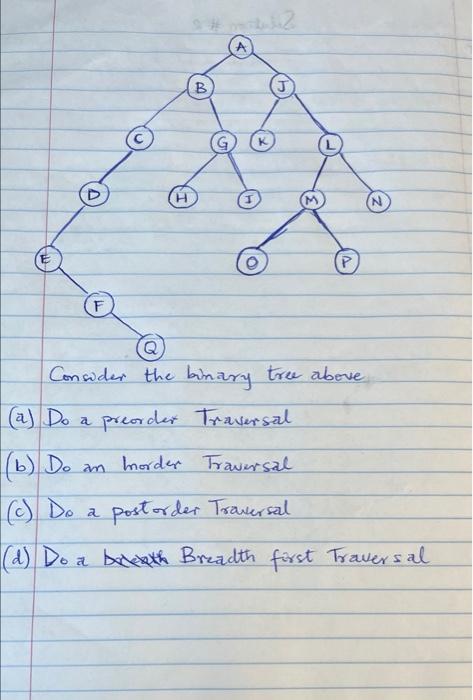 A
B J
C G K L
D H I M N
E O P
F
Q
Consider the binary tree above
(a) Do a preorder Traversal
(b) Do an Inorder Traversal
(c) Do a postorder Traversal
(d) Do a Breadth first Traversal